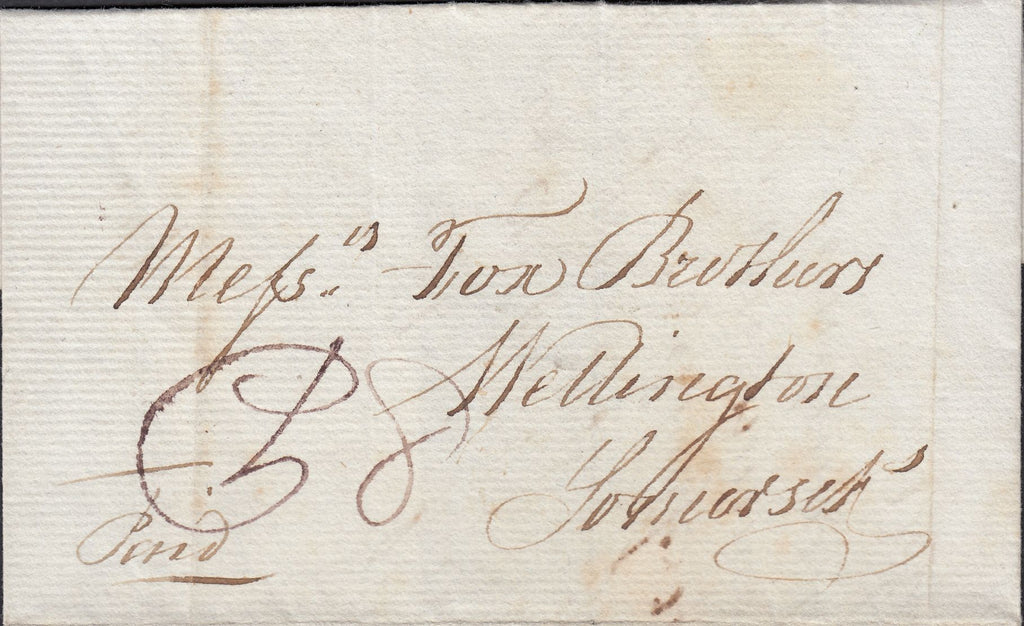 Messrs.. Fox Brothers
Wellington
Somersett
Paid